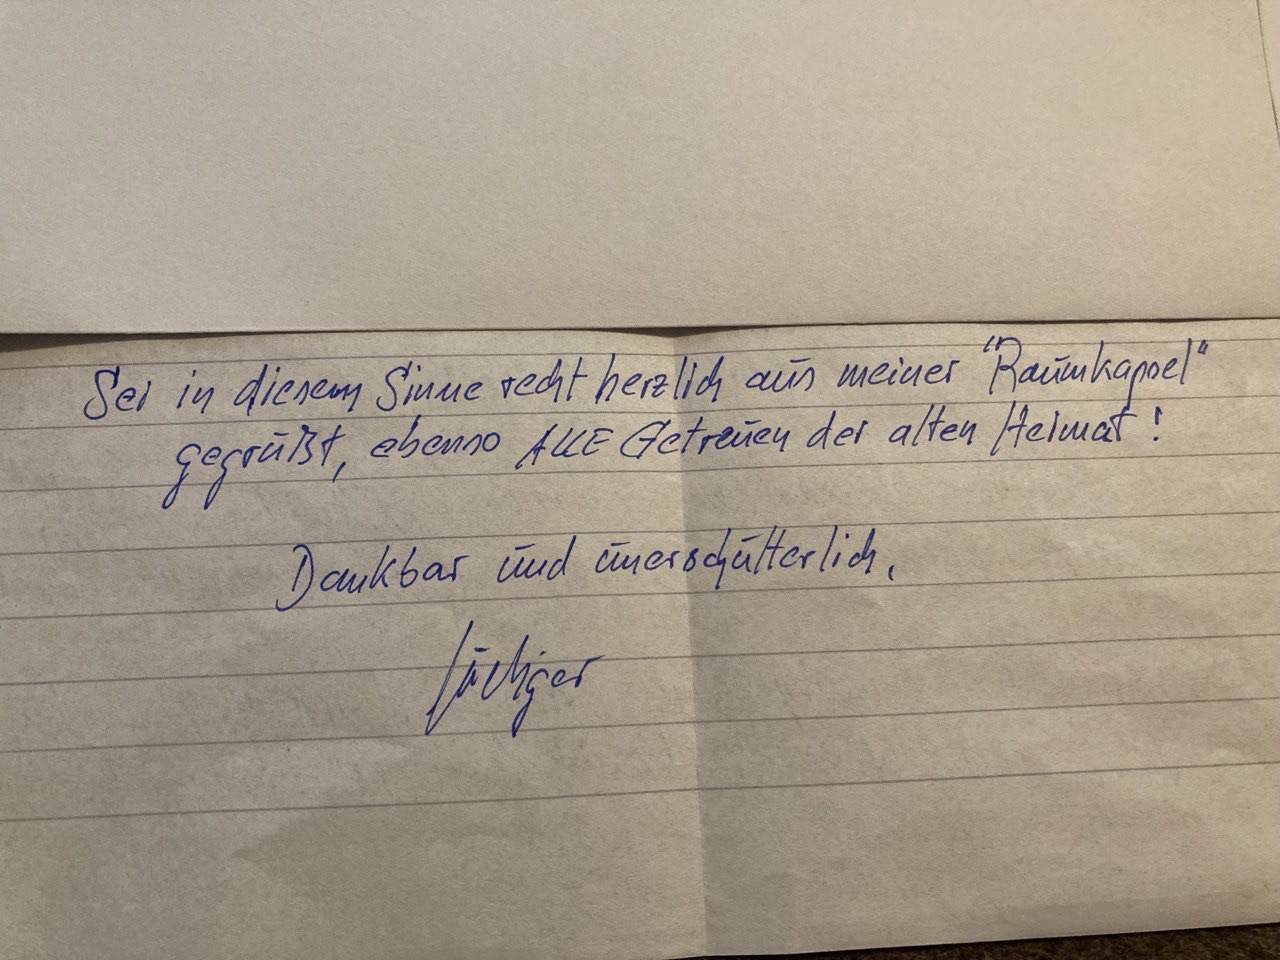 Sei in diesem Sinne recht herzlich aus meiner "Raumkapsel"
gegrüßt, ebenso ALLE Getreuen der alten Heimat!
Dankbar und unerschütterlich,